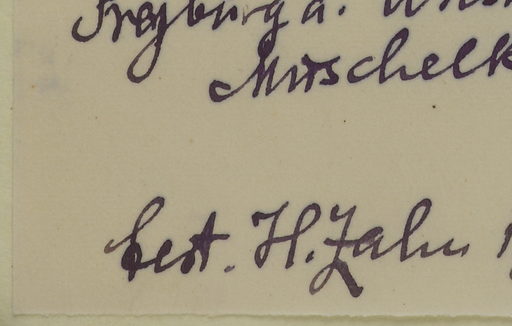 Freyburg a. Unst
Muschelk
best. H. Zahn 1